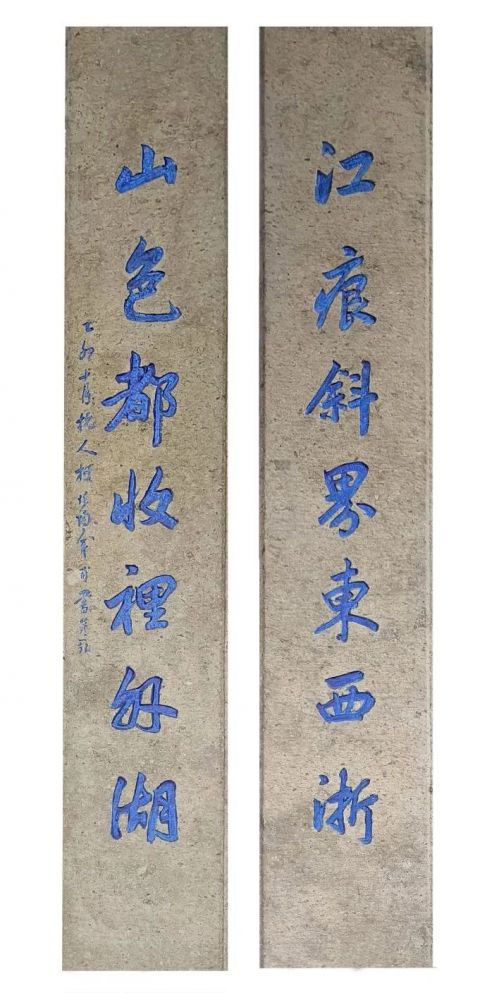 江痕斜界東西浙
山色都收裡外湖
乙卯十月